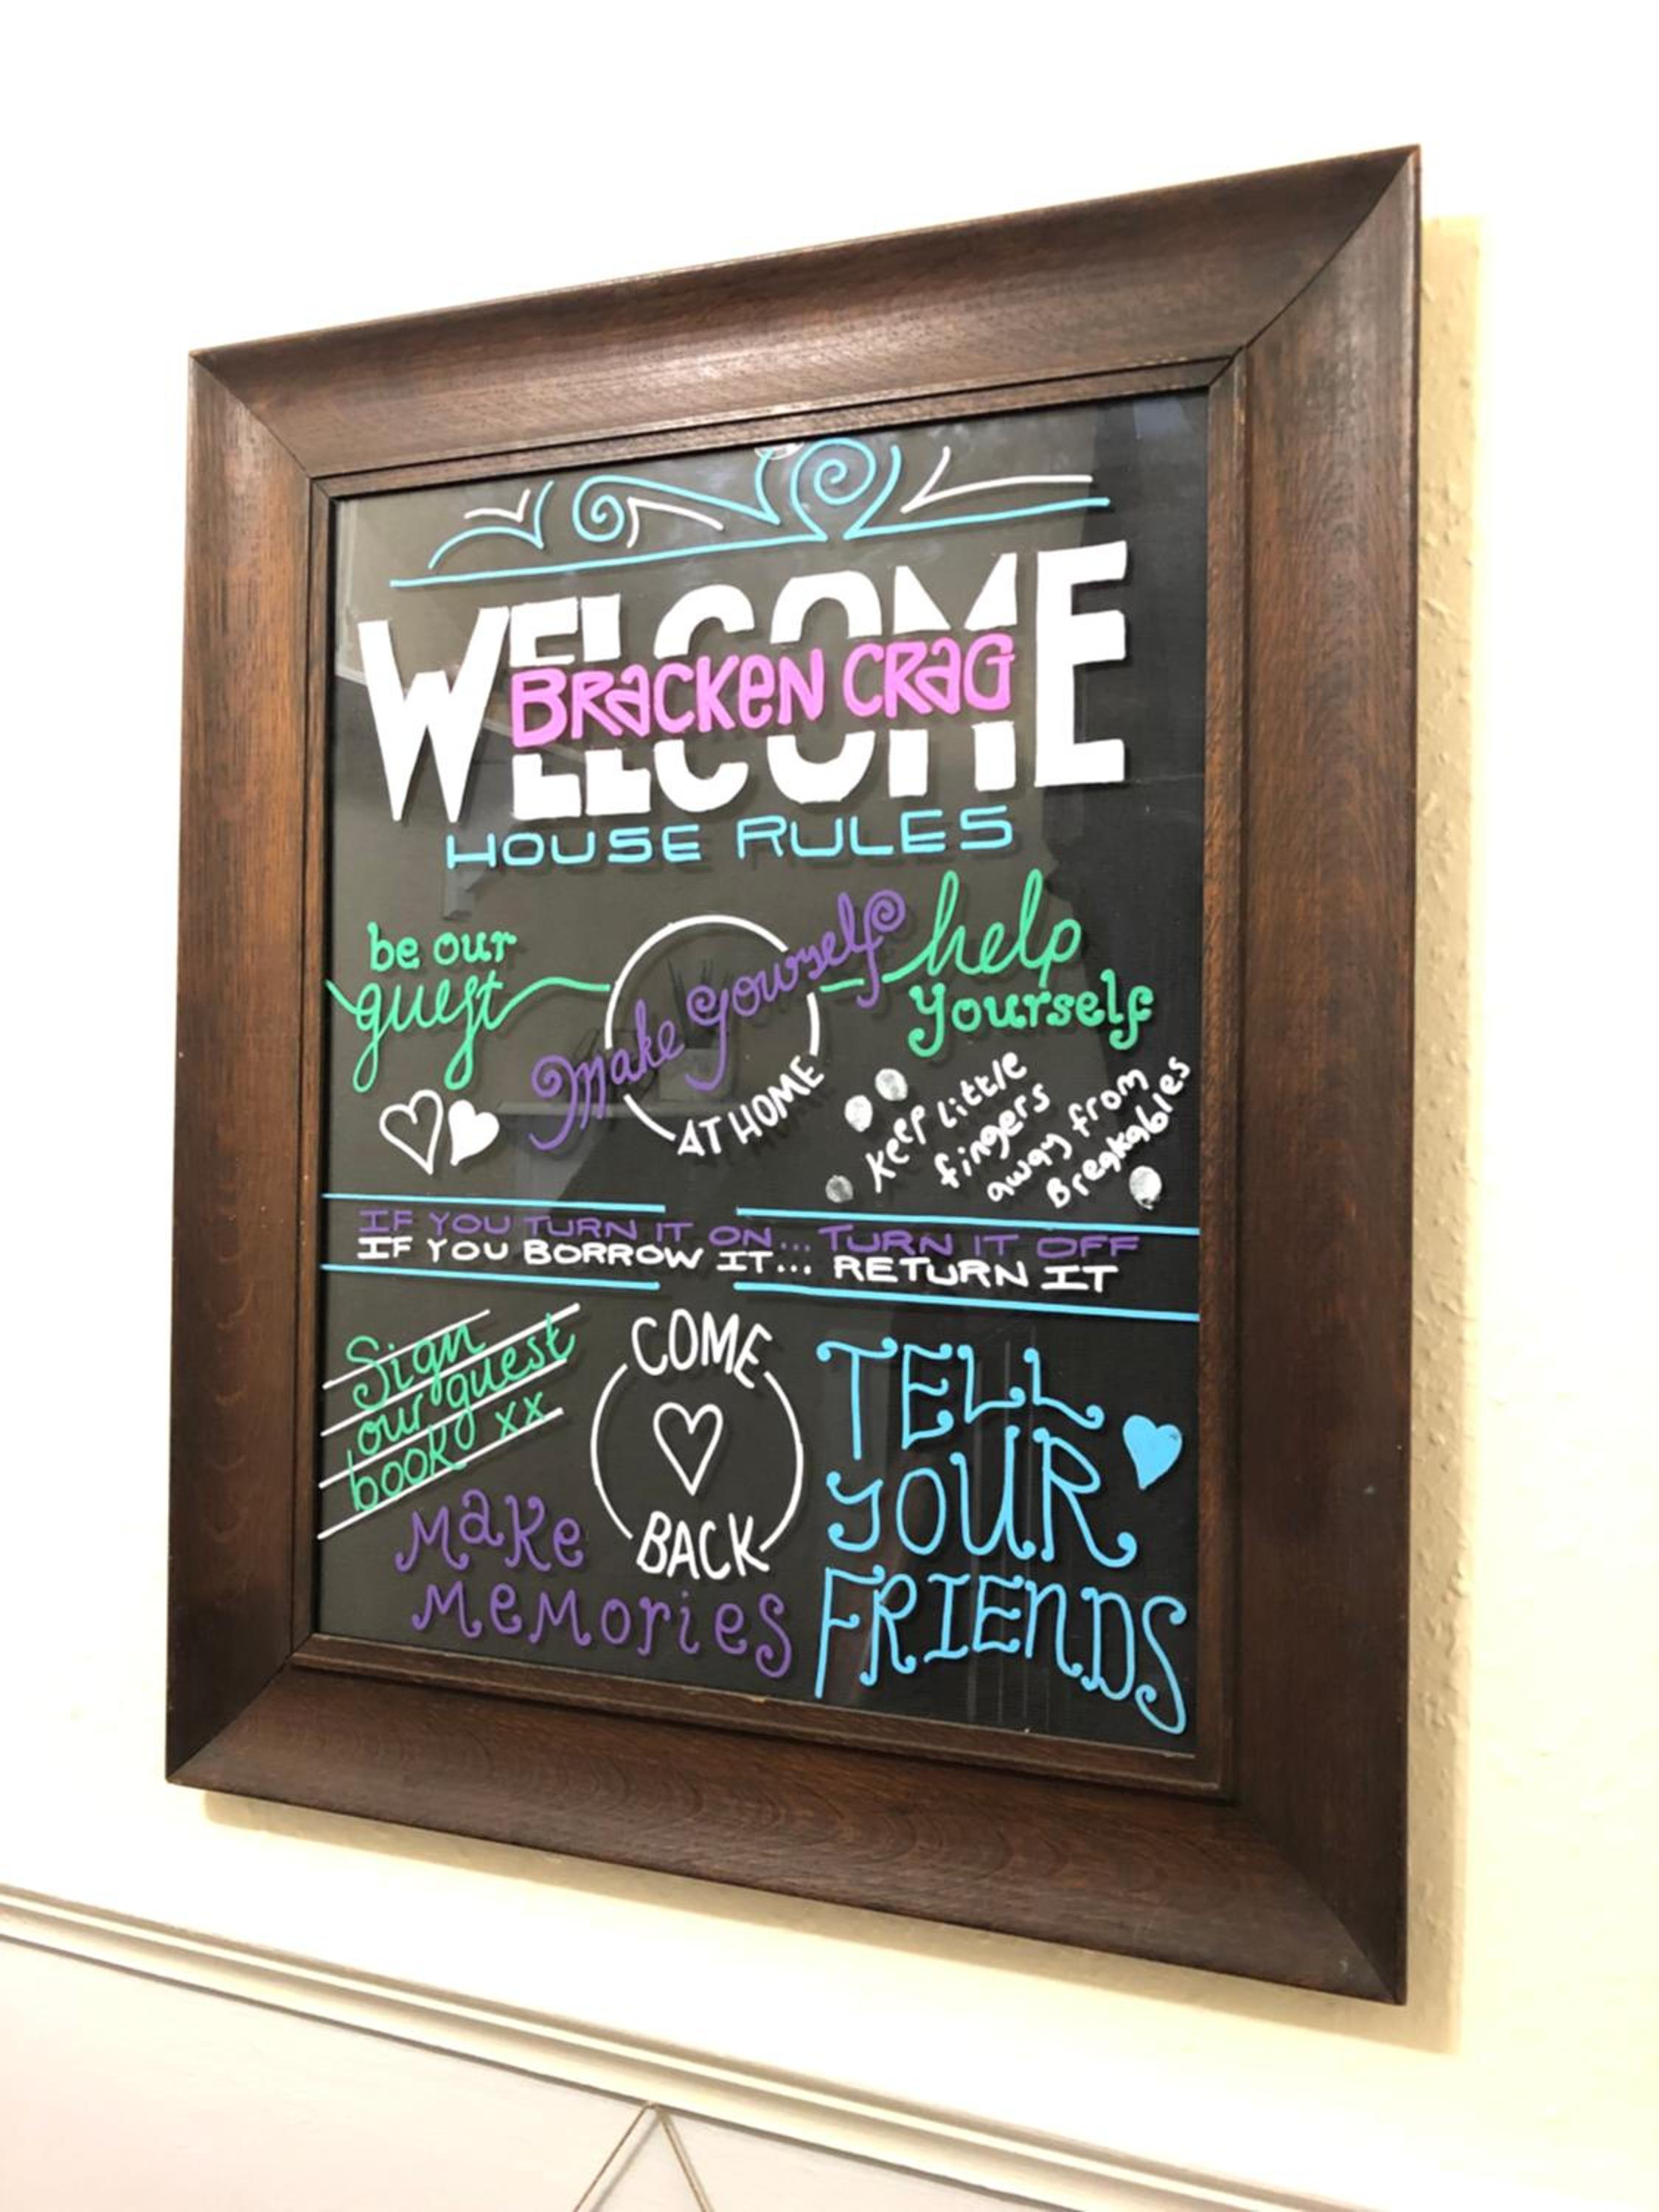 WELCOME
BRACKEN CRAG
HOUSE RULES
be our
guest
Make yourself
AT HOME
help
yourself
Keep little
fingers
away from
Breakables
IF YOU TURN IT ON... TURN IT OFF
IF YOU BORROW IT... RETURN IT
Sign
our guest
book xx
COME
BACK
Make
Memories
TELL
YOUR
FRIENDS